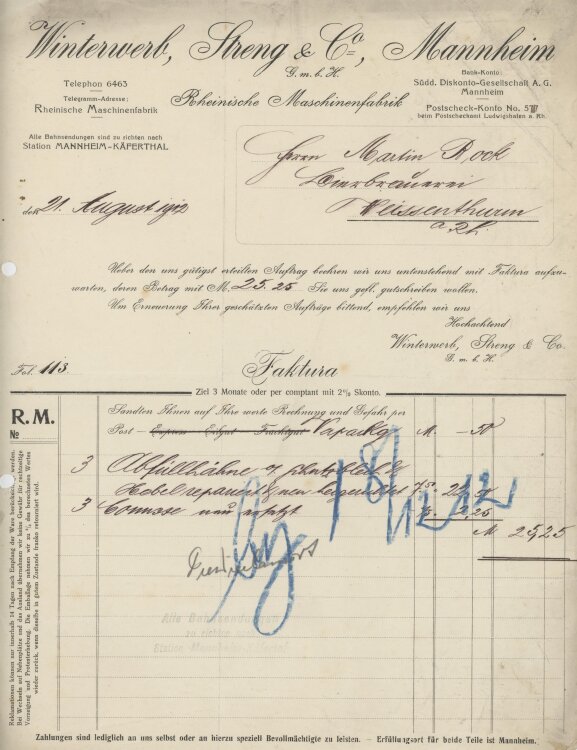 Winterwerb, Streng & Co, Mannheim
G. m. b. H.
Rheinische Maschinenfabrik
Telephon 6463
Telegramm-Adresse:
Rheinische Maschinenfabrik
Alle Bahnsendungen sind zu richten nach
Station MANNHEIM-KÄFERTHAL
Bank-Konto:
Südd. Diskonto-Gesellschaft A. G.
Mannheim
Postscheck-Konto No.
beim Postscheckamt Ludwigshafen a. Rh.
Herrn Martin Bock
Bierbrauerei
Weissenthurm
a. Rh.
den 21. August 1912
Ueber den uns gütigst erteilten Auftrag beehren wir uns untenstehend mit Faktura aufzu-
warten, deren Betrag mit M. 25.25 Sie uns gefl. gutschreiben wollen.
Um Erneuerung Ihrer geschätzten Aufträge bittend, empfehlen wir uns
Hochachtend
Winterwerb, Streng & Co.
G. m. b. H.
Fol. 113
Faktura
Ziel 3 Monate oder per comptant mit 2% Skonto.
R. M.
No
Sandten Ihnen auf Ihre werte Rechnung und Gefahr per
Post - Express - Eilgut - Frachtgut M. - 50
3 Abfüllhähne
repariert
3 neu ersetzt 2,25
M 25,25
18/12 12
Alle Bahnsendungen
zu richten
Station Mannheim-Käfertal
Reklamationen können nur innerhalb 14 Tagen nach Empfang der Ware berücksichtigt werden.
Bei Wechseln auf Nebenplätze und das Ausland übernehmen wir keine Gewähr für rechtzeitige
Vorzeigung und Protesterhebung. Die Emballage nehmen wir zu ⅔ des berechneten Wertes
wieder zurück, wenn dieselbe in gutem Zustande franko retourniert wird.
Zahlungen sind lediglich an uns selbst oder an hierzu speziell Bevollmächtigte zu leisten. — Erfüllungsort für beide Teile ist Mannheim.